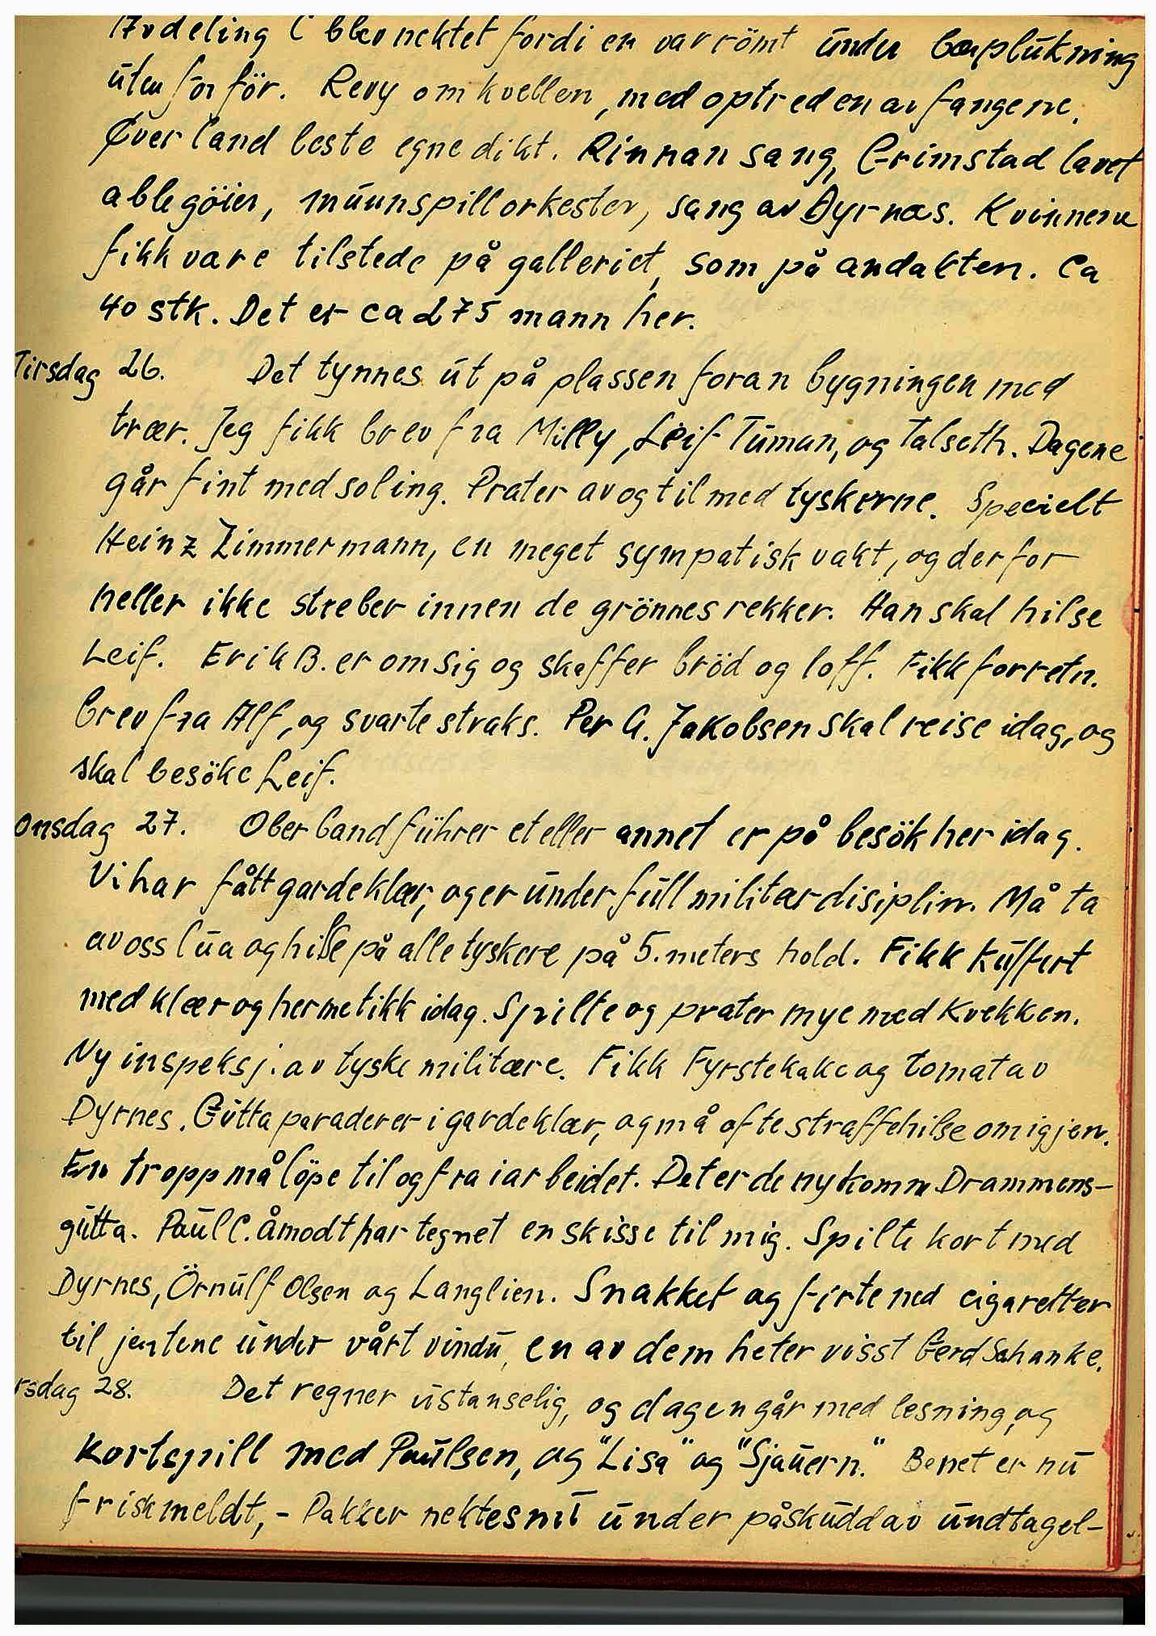 Avdeling C blev nektet fordi en var römt under bærplukning
utenfor för. Revy om kvellen, med optreden av fangene.
Øverland leste egne dikt. Rinnan sang, Grimstad lavet
ablegöier, muunspillorkester, sang av Dyrnæs. Kvinnene
fikk være tilstede på galleriet, som på andakten. Ca
40 stk. Det er ca 275 mann her.
Tirsdag 26. Det tynnes ut på plassen foran bygningen med
trær. Jeg fikk brev fra Milly, Leif Tuman, og Talseth. Dagene
går fint med soling. Prater av og til med tyskerne. Specielt
Heinz Zimmermann, en meget sympatisk vakt, og derfor
heller ikke streber innen de grönnes rekker. Han skal hilse
Leif. Erik B. er om sig og skaffer bröd og loff. Fikk forretn.
brev fra Alf, og svarte straks. Per G. Jakobsen skal reise idag, og
skal besöke Leif.
Onsdag 27. Oberlandführer et eller annet er på besök her idag.
Vi har fått gardeklær, og er under full militærdisiplin. Må ta
av oss lua og hilse på alle tyskere på 5. meters hold. Fikk kuffert
med klær og hermetikk idag. Spilte og prater mye med Kvekken.
Ny inspeksj. av tyske militære. Fikk Fyrstekake og tomat av
Dyrnes. Gutta paraderer i gardeklær, og må ofte straffehilse om igjen.
En tropp må löpe til og fra i arbeidet. Det er de nykomm Drammens-
gutta. Paul C. Åmodt har tegnet en skisse til mig. Spilte kort med
Dyrnes, Örnulf Olsen og Langlien. Snakket og firte ned cigaretter
til jentene under vårt vindu, en av dem heter visst Gerd Schanke.
rsdag 28. Det regner ustanselig, og dagen går med lesning, og
kortspill med Paulsen, og "Lisa" og "Sjauern." Benet er nu
friskmeldt, - Pakker nektes nu under påskudd av undtagel-